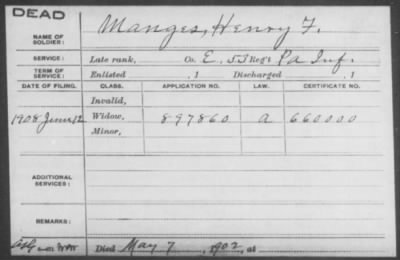 DEAD
NAME OF SOLDIER: Manges, Henry F.
SERVICE: Late rank, Co. E. 55 Reg't Pa Inf.
TERM OF SERVICE: Enlisted , 1 Discharged , 1
DATE OF FILING. CLASS. APPLICATION NO. LAW. CERTIFICATE NO.
Invalid,
1908 June 12 Widow, 897860 a 660000
Minor,
ADDITIONAL SERVICES:
REMARKS:
Died May 7, 1902, at